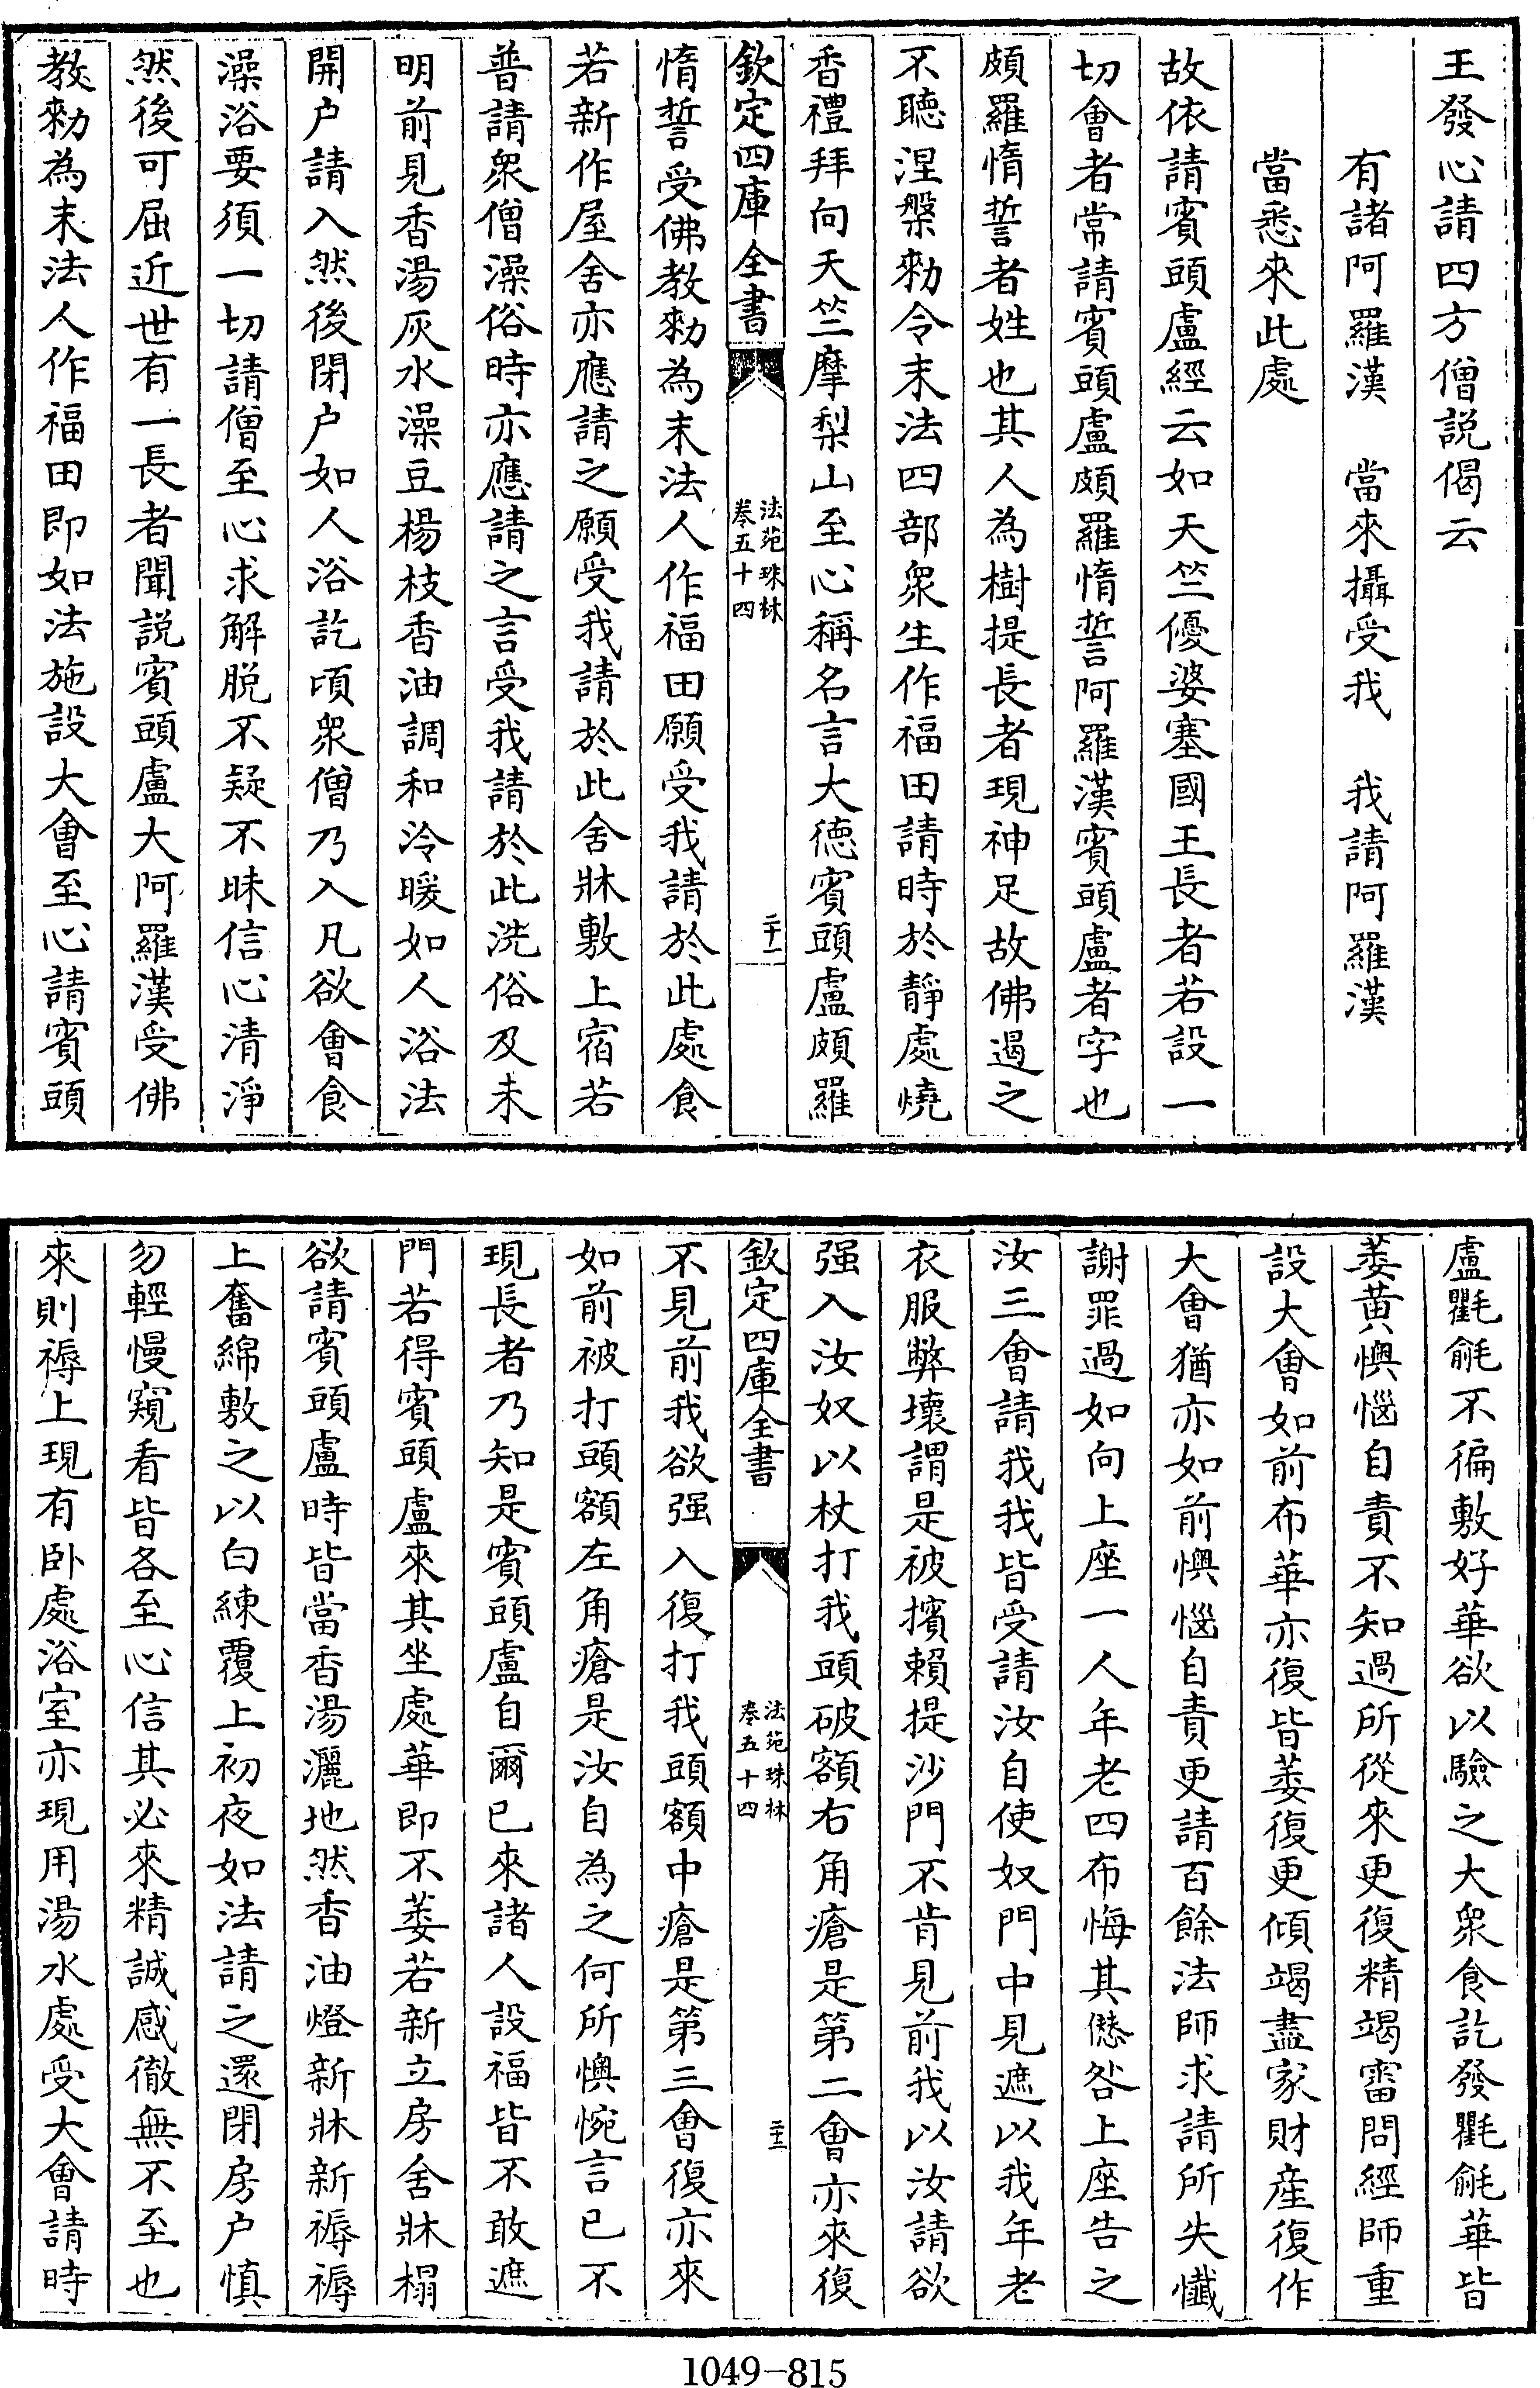 王發心請四方僧説偈云
有諸阿羅漢　當來攝受我　我請阿羅漢
當悉來此處
故依請賓頭盧經云如天竺優婆塞國王長者若設一
切會者常請賓頭盧頗羅惰誓阿羅漢賓頭盧者字也
頗羅惰誓者姓也其人為樹提長者現神足故佛遏之
不聽涅槃勑令末法四部衆生作福田請時於靜處燒
香禮拜向天竺摩梨山至心稱名言大徳賓頭盧頗羅
欽定四庫全書
法苑珠林
卷五十四
二十一
惰誓受佛教勑為末法人作福田願受我請於此處食
若新作屋舍亦應請之願受我請於此舍牀敷上宿若
普請衆僧澡俗時亦應請之言受我請於此洗俗及未
明前見香湯灰水澡豆楊枝香油調和冷暖如人浴法
開户請入然後閉户如人浴訖頃衆僧乃入凡欲會食
澡浴要須一切請僧至心求解脱不疑不昧信心清淨
然後可屈近世有一長者聞説賓頭盧大阿羅漢受佛
教勑為末法人作福田即如法施設大會至心請賓頭
盧氍毹不徧敷好華欲以驗之大衆食訖發氍毹華皆
萎黄懊惱自責不知過所從來更復精竭審問經師重
設大會如前布華亦復皆萎復更傾竭盡家財産復作
大會猶亦如前懊惱自責更請百餘法師求請所失懺
謝罪過如向上座一人年老四布悔其愆咎上座告之
汝三會請我我皆受請汝自使奴門中見遮以我年老
衣服弊壞謂是被擯賴提沙門不肯見前我以汝請欲
强入汝奴以杖打我頭破額右角瘡是第二會亦來復
欽定四庫全書
法苑珠林
卷五十四
二十二
不見前我欲强入復打我頭額中瘡是第三會復亦來
如前被打頭額左角瘡是汝自為之何所懊惋言已不
現長者乃知是賓頭盧自爾已來諸人設福皆不敢遮
門若得賓頭盧來其坐處華即不萎若新立房舍牀榻
欲請賓頭盧時皆當香湯灑地然香油燈新牀新褥褥
上奮綿敷之以白練覆上初夜如法請之還閉房户慎
勿輕慢窺看皆各至心信其必來精誠感徹無不至也
來則褥上現有卧處浴室亦現用湯水處受大會請時
1049-815